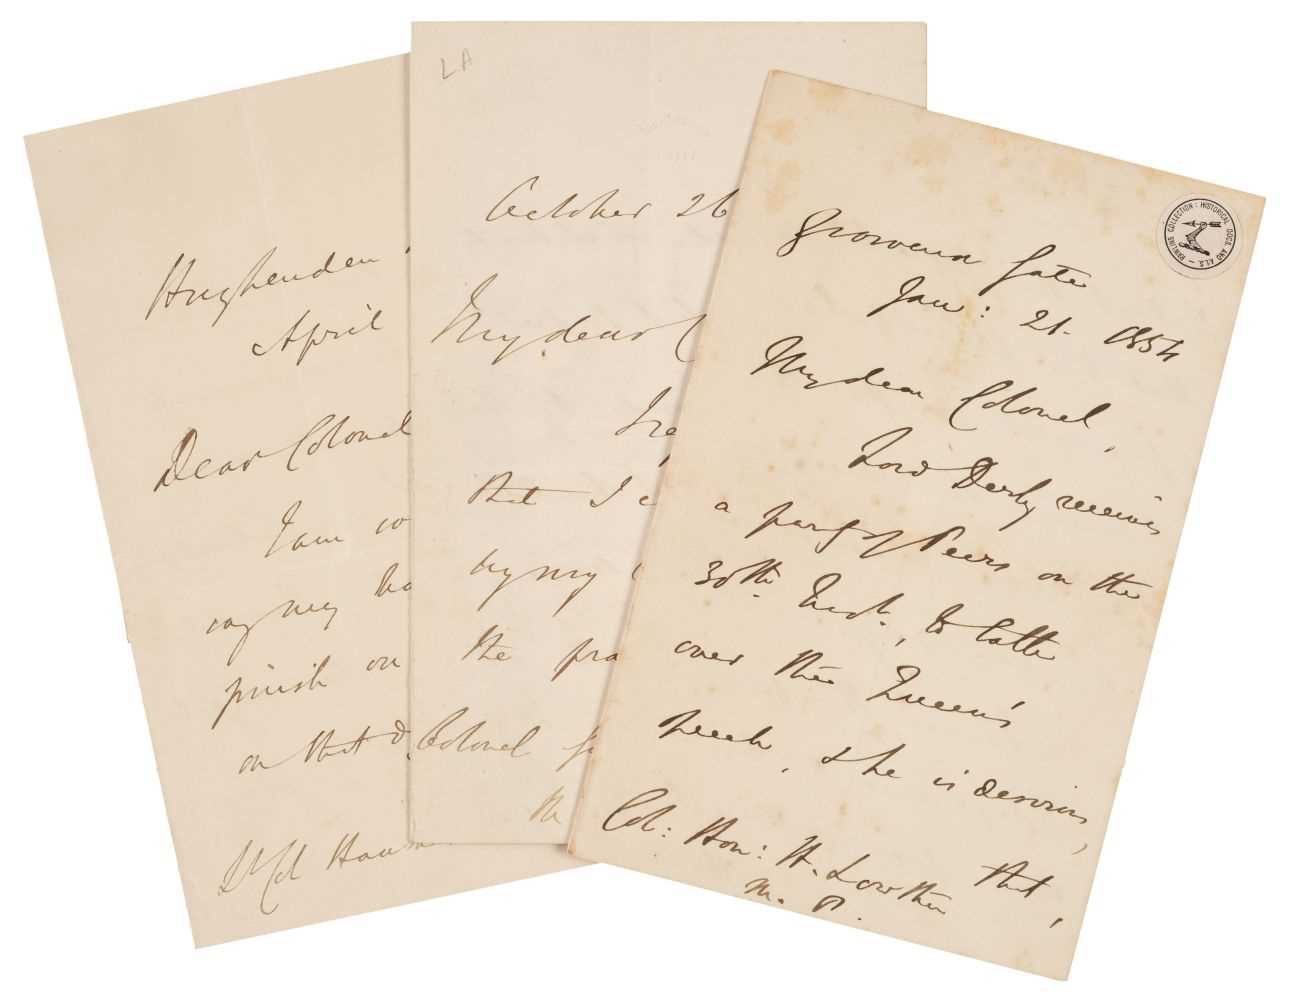 Hughenden
April
Dear Colonel
I am
my
finish on
on that d
Lt Col
LA
October 26
My dear C
that I c
by my
the pra
Colonel
RAWLINS COLLECTION: HISTORICAL DOCS AND A.L.S.
Grosvenor Gate
Jan: 21. 1854
My dear Colonel,
Lord Derby receives
a party of Peers on the
30th Inst., to talk
over the Queen's
speech, & he is desirous,
that,
Col: Hon: H. Lowther
M. P.